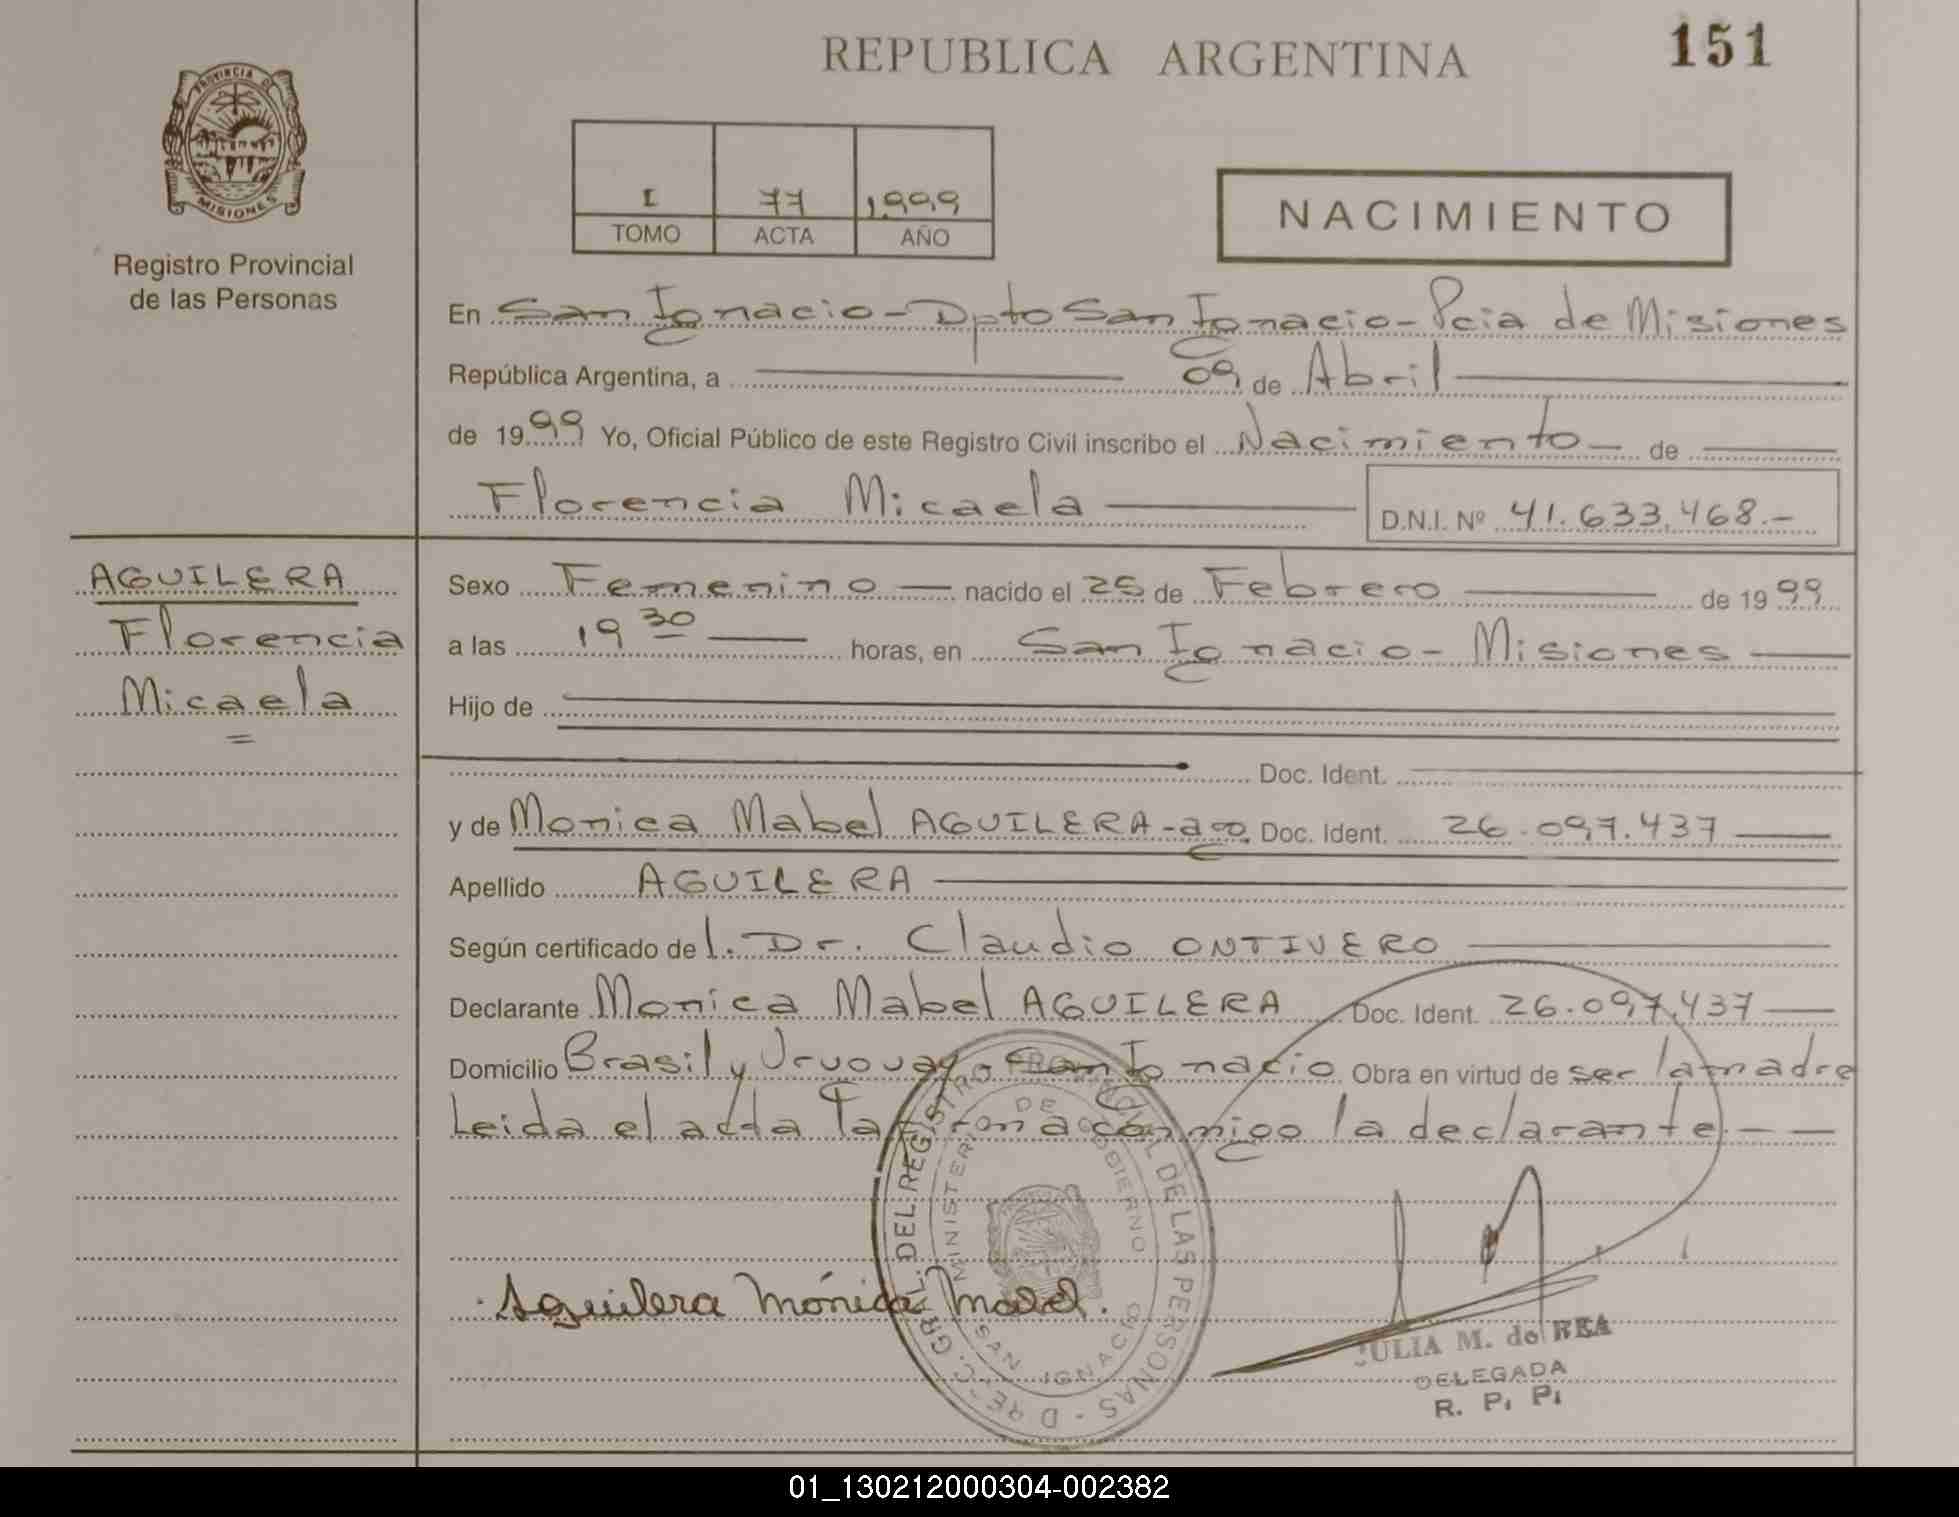 REPUBLICA ARGENTINA
151
PROVINCIA DE
MISIONES
Registro Provincial
de las Personas
I 77 1999
TOMO ACTA AÑO
NACIMIENTO
En San Ignacio - Dpto San Ignacio - Pcia de Misiones
República Argentina, a 09 de Abril
de 1999 Yo, Oficial Público de este Registro Civil inscribo el Nacimiento de
Florencia Micaela
D.N.I. Nº 41.633.468.-
AGUILERA
Florencia
Micaela
Sexo Femenino nacido el 25 de Febrero de 1999
a las 19 30 horas, en San Ignacio - Misiones
Hijo de
Doc. Ident.
y de Monica Mabel AGUILERA - Doc. Ident. 26.097.437
Apellido AGUILERA
Según certificado de l. Dr. Claudio ONTIVERO
Declarante Monica Mabel AGUILERA Doc. Ident. 26.097.437
Domicilio Brasil y Uruguay - San Ignacio Obra en virtud de ser la madre
Leida el acta la firma conmigo la declarante - -
DIREC. GRAL. DEL REGISTRO PROVINCIAL DE LAS PERSONAS -
MINISTERIO DE GOBIERNO
SAN IGNACIO
Aguilera Mónica Mabel.
JULIA M. de REA
DELEGADA
R. P. P.
01_130212000304-002382